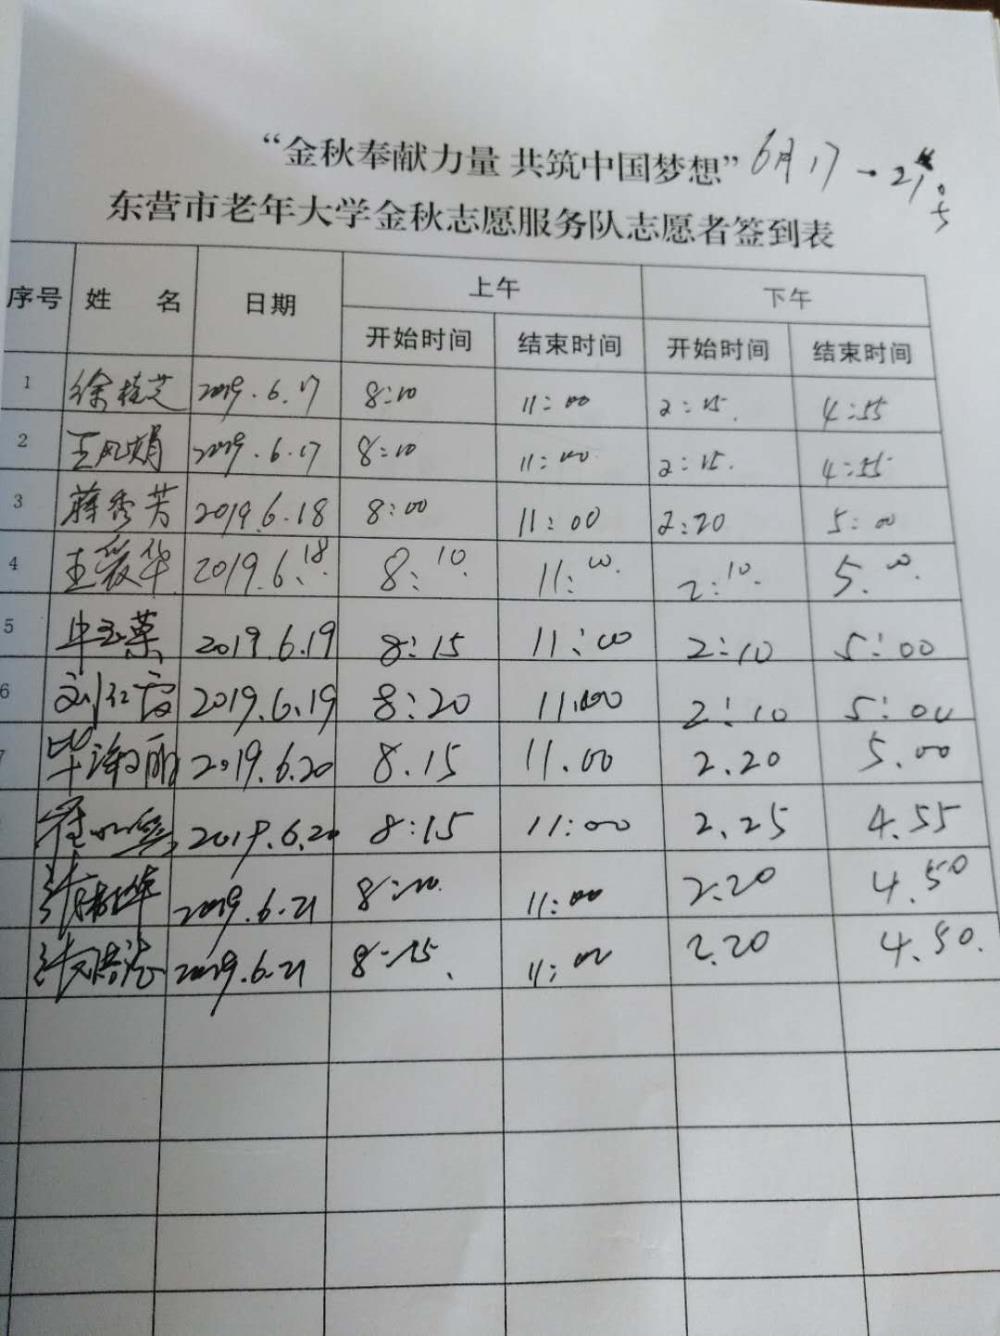 “金秋奉献力量 共筑中国梦想” 6月17-21
东营市老年大学金秋志愿服务队志愿者签到表
序号 姓 名 日期 上午 下午
开始时间 结束时间 开始时间 结束时间
1 徐桂芝 2019.6.17 8:10 11:00 2:15. 4:55
2 王风娟 2019.6.17 8:10 11:00 2:15. 4:55
3 蒋秀芳 2019.6.18 8:00 11:00 2:20 5:00
4 王爱华 2019.6.18. 8:10. 11:00. 2:10. 5.00.
5 2019.6.19 8:15 11:00 2:10 5:00
6 刘红霞 2019.6.19 8:20 11:00 2:10 5:00
7 2019.6.20 8.15 11.00 2.20 5.00
2019.6.20 8:15 11:00 2.25 4.55
2019.6.21 8:20. 11:00 2.20 4.50
2019.6.21 8:15. 11:00 2.20 4.50.